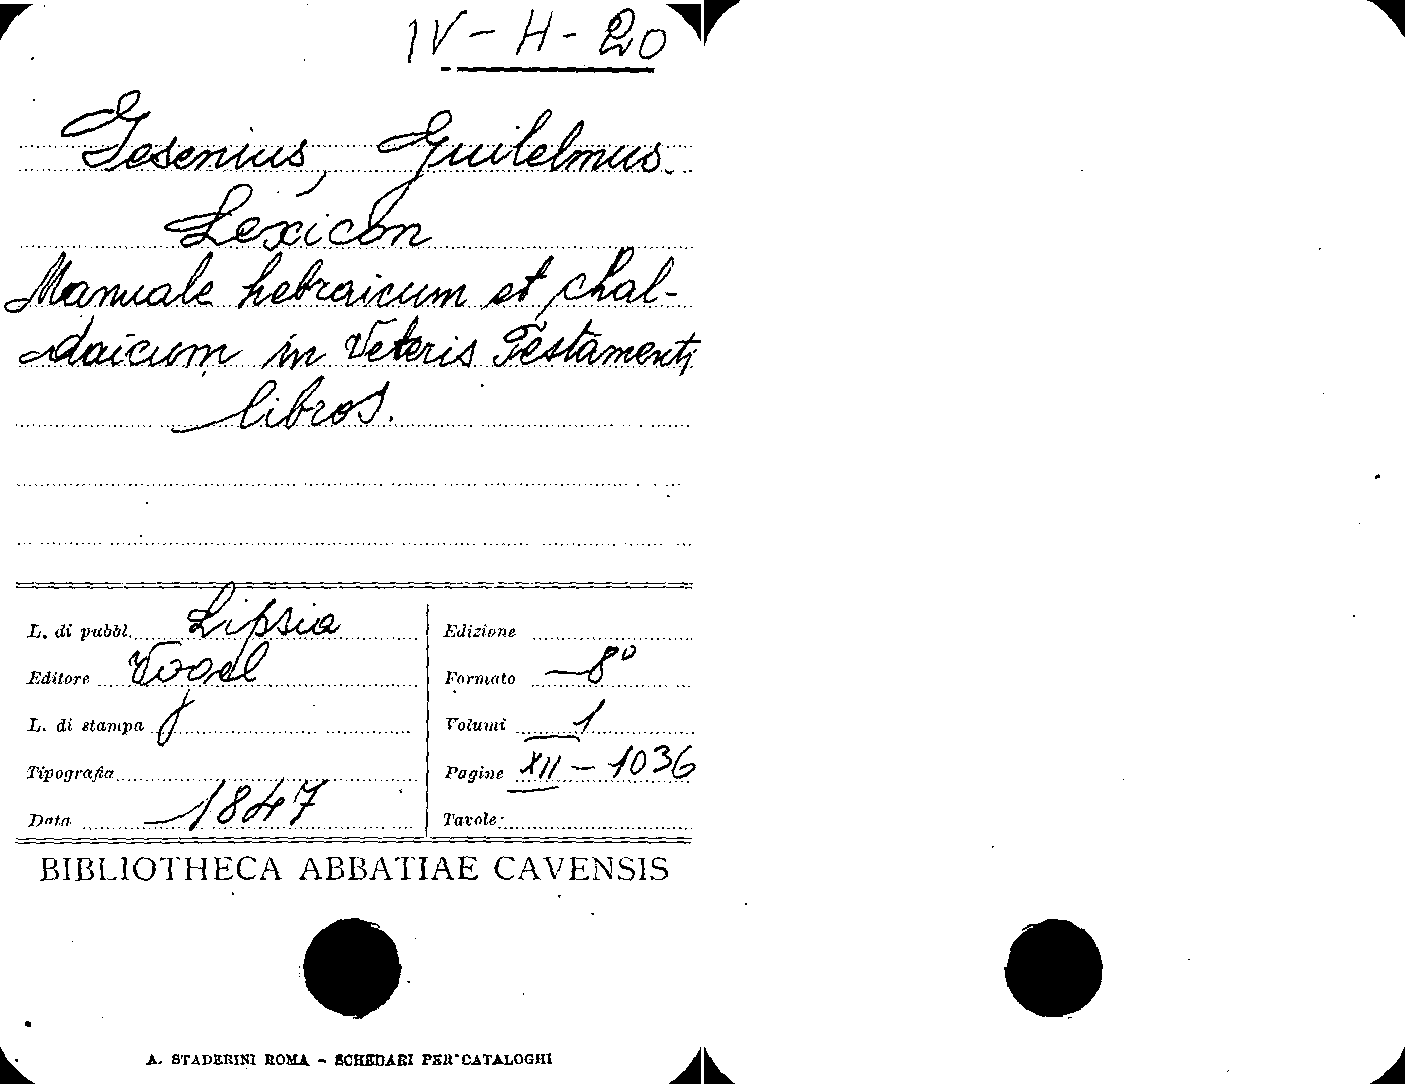 IV - H - 20
Gesenius, Guilelmus.
Lexicon
Manuale hebraicum et chal-
daicum in Veteris Testamenti
libros.
L. di pubbl. Lipsia
Editore Vogel
L. di stampa
Tipografia
Data 1847
Edizione
Formato 8º
Volumi 1
Pagine XII - 1036
Tavole
BIBLIOTHECA ABBATIAE CAVENSIS
A. STADERINI ROMA - SCHEDARI PER CATALOGHI